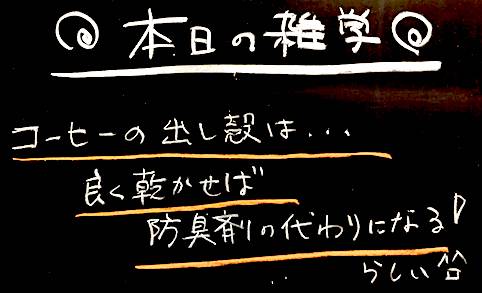 本日の雑学
コーヒーの出し殻は...
良く乾かせば
防臭剤の代わりになる!
らしい^^